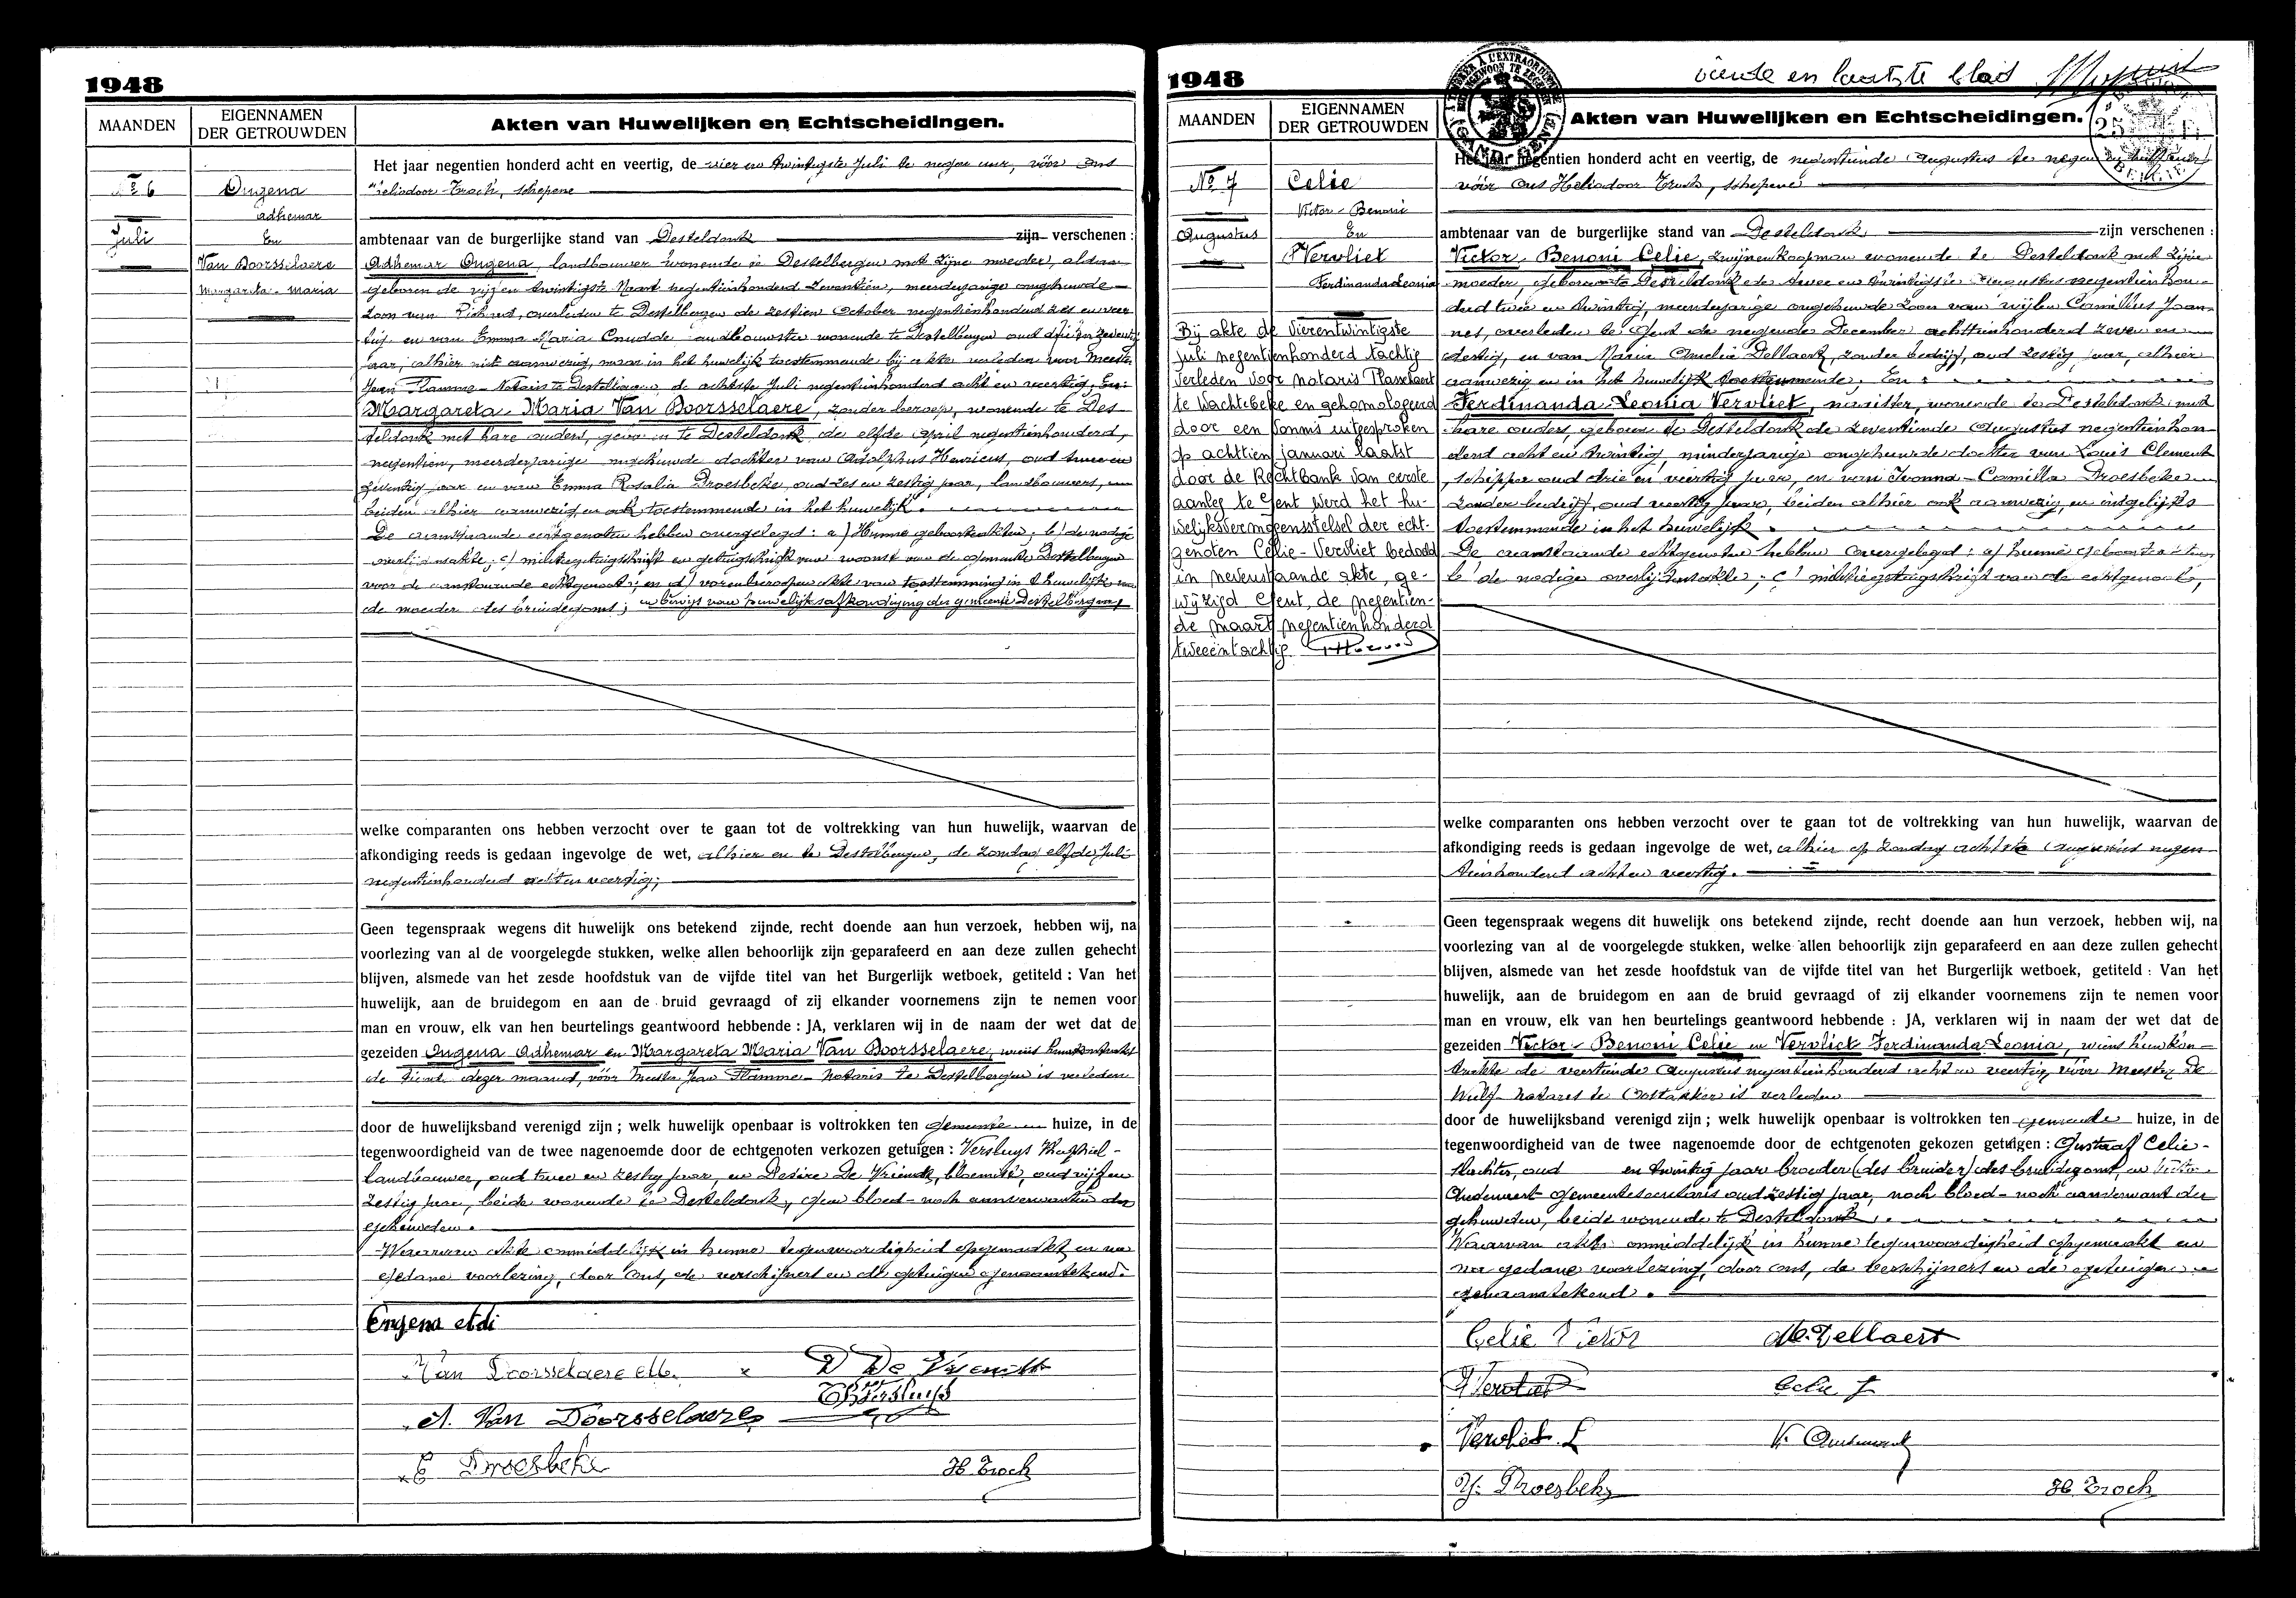 1948
MAANDEN
EIGENNAMEN
DER GETROUWDEN
Akten van Huwelijken en Echtscheidingen.
Het jaar negentien honderd acht en veertig, de vier en twintigste Juli te negen uur, vóór ons
Heliodoor Troch, schepene
Nº 6
Ongena
Adhemar
Juli
En
Van Doorsselaere
Margareta-Maria
ambtenaar van de burgerlijke stand van Desteldonk zijn verschenen :
Adhemar Ongena, landbouwer wonende te Destelbergen met zijne moeder, aldaar
geboren de vijf en twintigste Maart negentienhonderd zeventien, meerderjarige ongehuwde
zoon van Richard, overleden te Destelbergen de zestien October negentienhonderd zes en veer
tig en van Emma Maria Cnudde landbouwster wonende te Destelbergen oud drie en zeventig
jaar, alhier niet aanwezig, maar in het huwelijk toestemmende bij akte verleden voor Meester
Jean Flamme - Notaris te Destelbergen de achtste Juli negentienhonderd acht en veertig. En:
Margareta Maria Van Doorsselaere, zonder beroep, wonende te Des-
teldonk met hare ouders, geboren te Desteldonk de elfde April negentienhonderd,
negentien, meerderjarige ongehuwde dochter van Adolphus Henricus, oud twee en
zeventig jaar en van Emma Rosalia Droesbeke, oud zes en zestig jaar, landbouwers,
beiden alhier aanwezig en ook toestemmende in het huwelijk.
De aanstaande echtgenoten hebben overgelegd : a) Hunne geboorteakten; b) de nodige
overlijdensakte; c) militiegetuigschrift en getuigschrift van woonst van de gemeente Destelbergen
voor de aanstaande echtgenoot; en d) vorenberoepen akte van toestemming in 't huwelijk van
de moeder des bruidegoms; en bewijs van huwelijksafkondiging der gemeente Destelbergen;
welke comparanten ons hebben verzocht over te gaan tot de voltrekking van hun huwelijk, waarvan de
afkondiging reeds is gedaan ingevolge de wet, alhier en te Destelbergen, de zondag elfde Juli
negentienhonderd acht en veertig;
Geen tegenspraak wegens dit huwelijk ons betekend zijnde, recht doende aan hun verzoek, hebben wij, na
voorlezing van al de voorgelegde stukken, welke allen behoorlijk zijn geparafeerd en aan deze zullen gehecht
blijven, alsmede van het zesde hoofdstuk van de vijfde titel van het Burgerlijk wetboek, getiteld : Van het
huwelijk, aan de bruidegom en aan de bruid gevraagd of zij elkander voornemens zijn te nemen voor
man en vrouw, elk van hen beurtelings geantwoord hebbende : JA, verklaren wij in de naam der wet dat de
gezeiden Ongena Adhemar en Margareta Maria Van Doorsselaere, wiens huwkontrakt
de tiende dezer maand, vóór Meester Jean Flamme - Notaris te Destelbergen is verleden
door de huwelijksband verenigd zijn ; welk huwelijk openbaar is voltrokken ten gemeente huize, in de
tegenwoordigheid van de twee nagenoemde door de echtgenoten verkozen getuigen : Versluys
landbouwer, oud twee en zestig jaar, en Desire De Vriendt, bloemist, oud vijf en
zestig jaar, beide wonende te Desteldonk, geen bloed- noch aanverwanten der
gehuwden.
Waarvan akte onmiddelijk in hunne tegenwoordigheid opgemaakt en na
gedane voorlezing, door ons, de verschijners en de getuigen genaamtekend.
Ongena Adi
Van Doorsselaere M. x D De Vriendt
Versluys
A. Van Doorsselaere
E Droesbeke H. Troch
1948
vierde en laatste blad
MAANDEN
EIGENNAMEN
DER GETROUWDEN
Akten van Huwelijken en Echtscheidingen.
Het jaar negentien honderd acht en veertig, de negentiende Augustus te negen en half uur
vóór ons Heliodoor Troch, schepene
Nº 7
Celie
Victor-Benoni
Augustus
En
Vervliet
Ferdinanda Leonia
ambtenaar van de burgerlijke stand van Desteldonk zijn verschenen :
Victor-Benoni Celie, zwijnenkoopman wonende te Desteldonk met zijne
moeder, geboren te Desteldonk de twee en twintigste Augustus negentienhon-
derd twee en twintig, meerderjarige ongehuwde zoon van wijlen Camillus Joan-
nes, overleden te Gent de negende December achttienhonderd zeven en
dertig, en van Maria Amelia Dellaert, zonder bedrijf, oud zestig jaar, alhier
aanwezig en in het huwelijk toestemmende. En :
Ferdinanda Leonia Vervliet, naaister, wonende te Desteldonk met
hare ouders, geboren te Desteldonk de zeventiende Augustus negentienhon-
derd acht en twintig, minderjarige ongehuwde dochter van Louis Clement
, schipper oud drie en veertig jaar, en van Ivonna-Camilla Droesbeke
zonder bedrijf, oud veertig jaar, beiden alhier ook aanwezig, en insgelijks
toestemmende in het huwelijk.
De aanstaande echtgenoten hebben overgelegd : a) hunne geboorteakten
b) de nodige overlijdensakte; c) militiegetuigschrift van de echtgenoot,
Bij akte de vierentwintigste
juli negentienhonderd tachtig
verleden voor notaris Plasschaert
te Wachtebeke en gehomologeerd
door een vonnis uitgesproken
op achttien januari laatst
door de Rechtbank van eerste
aanleg te Gent werd het hu-
welijksvermogensstelsel der echt-
genoten Celie-Vervliet bedoeld
in nevenstaande akte, ge-
wijzigd Gent, de negentien-
de maart negentienhonderd
tweeëntachtig
welke comparanten ons hebben verzocht over te gaan tot de voltrekking van hun huwelijk, waarvan de
afkondiging reeds is gedaan ingevolge de wet, alhier op zondag achtste Augustus negen
tienhonderd acht en veertig.
Geen tegenspraak wegens dit huwelijk ons betekend zijnde, recht doende aan hun verzoek, hebben wij, na
voorlezing van al de voorgelegde stukken, welke allen behoorlijk zijn geparafeerd en aan deze zullen gehecht
blijven, alsmede van het zesde hoofdstuk van de vijfde titel van het Burgerlijk wetboek, getiteld : Van het
huwelijk, aan de bruidegom en aan de bruid gevraagd of zij elkander voornemens zijn te nemen voor
man en vrouw, elk van hen beurtelings geantwoord hebbende : JA, verklaren wij in naam der wet dat de
gezeiden Victor-Benoni Celie en Vervliet Ferdinanda Leonia, wiens huwkon-
trakte de veertiende Augustus negentienhonderd acht en veertig, vóór Meester De
Wulf notaris te Oostakker is verleden
door de huwelijksband verenigd zijn ; welk huwelijk openbaar is voltrokken ten gemeente huize, in de
tegenwoordigheid van de twee nagenoemde door de echtgenoten gekozen getuigen : Gustaaf Celie-
slachter, oud en twintig jaar broeder (des bruider) des bruidegoms, en Victor
Oudenaert gemeentesecretaris oud zestig jaar, noch bloed- noch aanverwant der
gehuwden, beide wonende te Desteldonk.
Waarvan akte onmiddelijk in hunne tegenwoordigheid opgemaakt en
na gedane voorlezing, door ons, de verschijners en de getuigen
genaamtekend.
Celie Victor M. Dellaert
F Vervliet Celie J
Vervliet L V. Oudenaert
Y. Droesbeke H. Troch